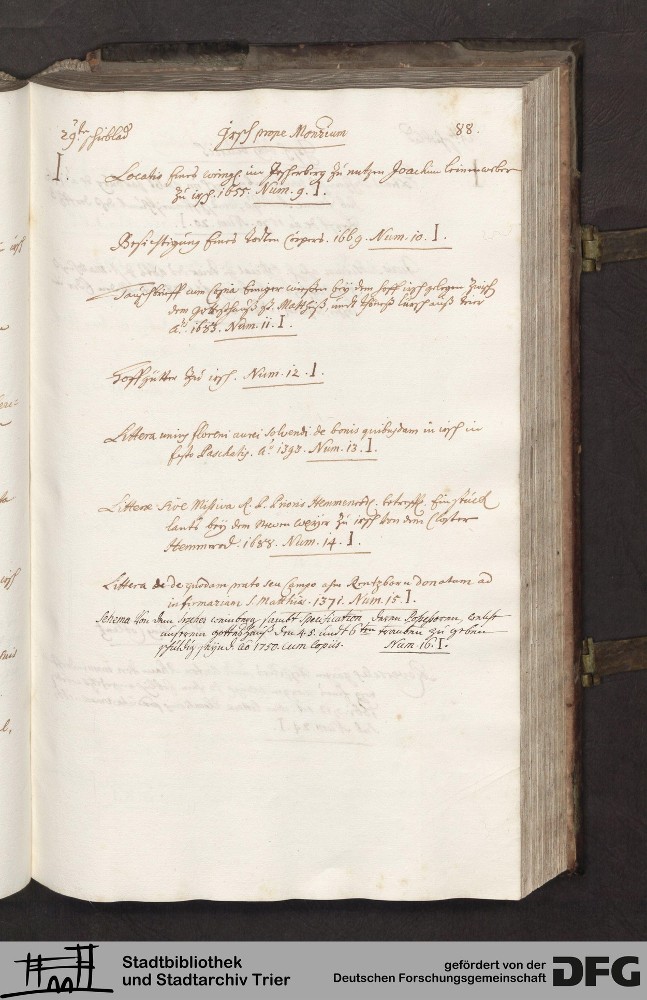 29ter schieblad Irsch prope Monzium 88.
I. Locatio eines wingl. im Irscherberg zu nutzen Joachim leinenweber
zu irsch. 1655. Num. 9. I.
Besichtigung eines todten Cörpers. 1669. Num. 10. I.
Tauschbrieff cum Copia einiger wiesen bey dem hoff irsch gelegen zwisch
dem gotteshauß St. Matthiß, undt auß trier
Ao. 1683. Num. 11. I.
Hoffgütter zu irsch. Num. 12. I.
Littera unius floreni aurei solvendi de bonis quibusdam in irsch in
festo Paschatis. Ao. 1393. Num. 13. I.
Litterae sive Missiva R. P. Prioris Hemmenrod. betreffl. ein stück
lants bey dem neuen weyer zu irsch von dem Closter
Hemmerod. 1688. Num. 14. I.
Littera de quodam prato seu Campo ahn Rentzborn donatum ad
infirmariam S. Matthiae. 1371. Num. 15. I.
Schema von dem Irscher weinberg sambt specification, deren welche
unserem gotteshauß den 4. 5. undt 6ten trauben zu geben
schuldig seynd. Ao 1750. cum Copiis. Num. 16. I.
Stadtbibliothek
und Stadtarchiv Trier
gefördert von der
Deutschen Forschungsgemeinschaft
DFG